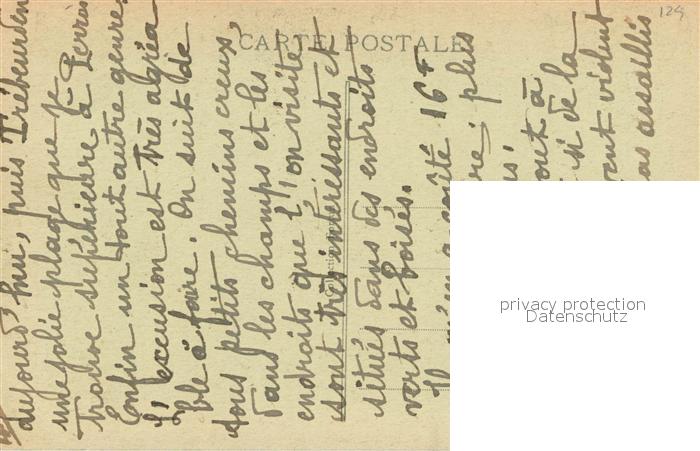 124
CARTE POSTALE
aujourd'hui, puis Trébeurden
une jolie plage que je
trouve supérieure à Perros
Enfin un tout autre genre.
L'excusion est très agréa
ble à faire. On suit de
tous petits chemins creux,
dans les champs et les
endroits que l'on visite
sont très intéressants et
situés dans des endroits
verts et boisés.
Il m'en a coûté 16 f
re; plus
out à
si de la
ent vident
as assaillis
privacy protection
Datenschutz